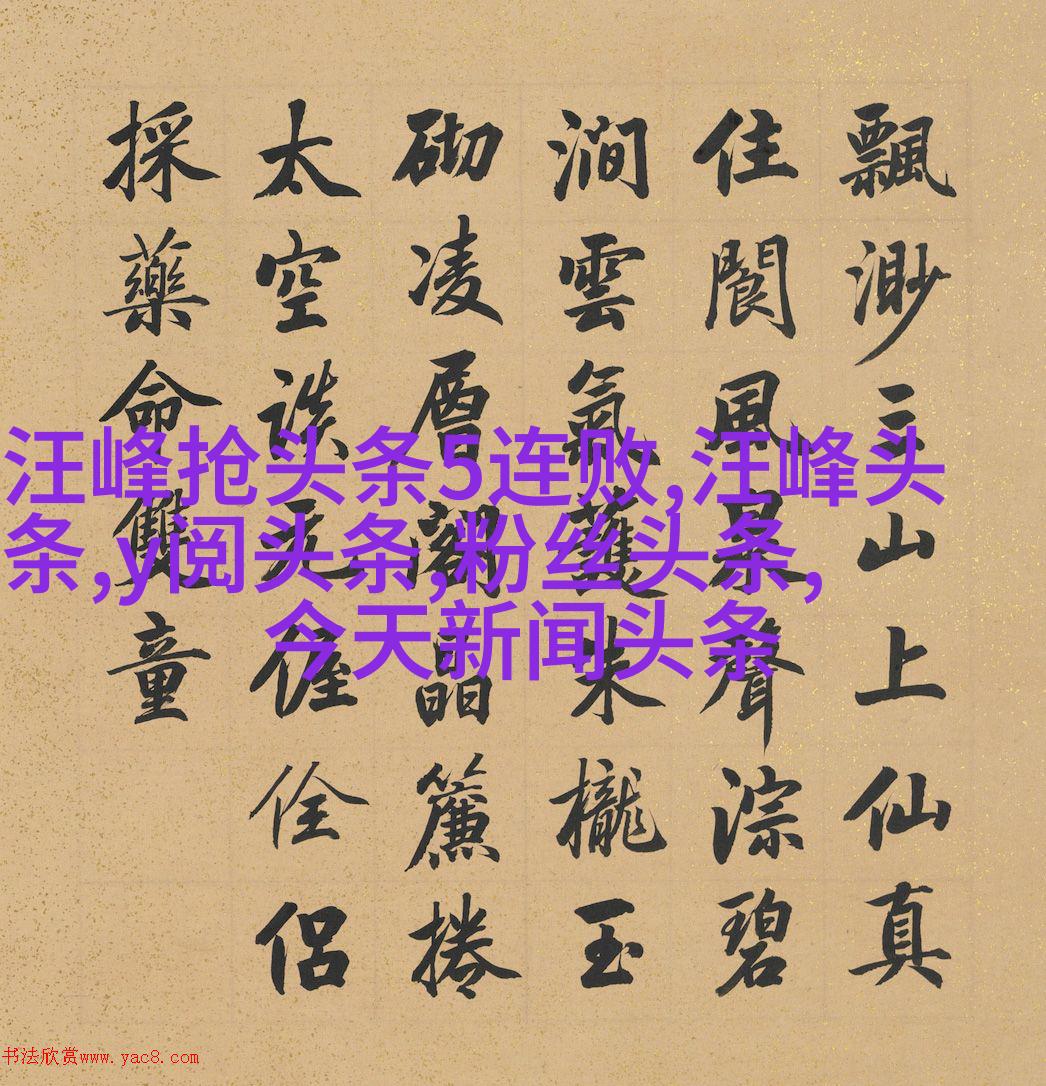 飄渺三山上仙真
住閬風景聲淙碧
澗雲氣護朱櫳玉
砌凌層閣晶簾捲
太空談无偓佺侶
採藥命雙童
汪峰抢头条5连败,汪峰头
条,y阅头条,粉丝头条,
今天新闻头条
书法欣赏www.yac8.com